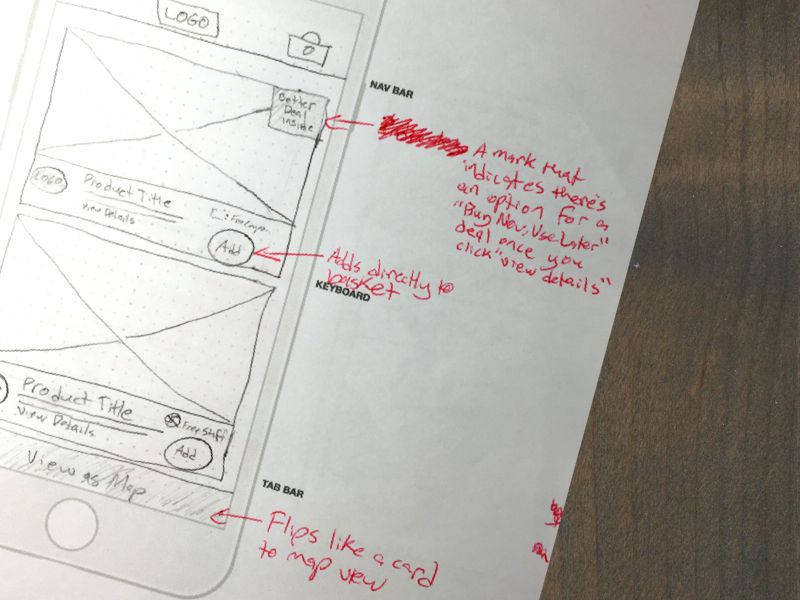 LOGO
0
NAV BAR
Better
Deal
inside
A mark that
indicates there's
an option for a
"Buy Now, Use Later"
deal once you
click "view details"
LOGO
Product Title
View Details
Add
Adds directly to
basket
KEYBOARD
Product Title
View Details
Free
Add
View as Map
TAB BAR
Flips like a card
to map view